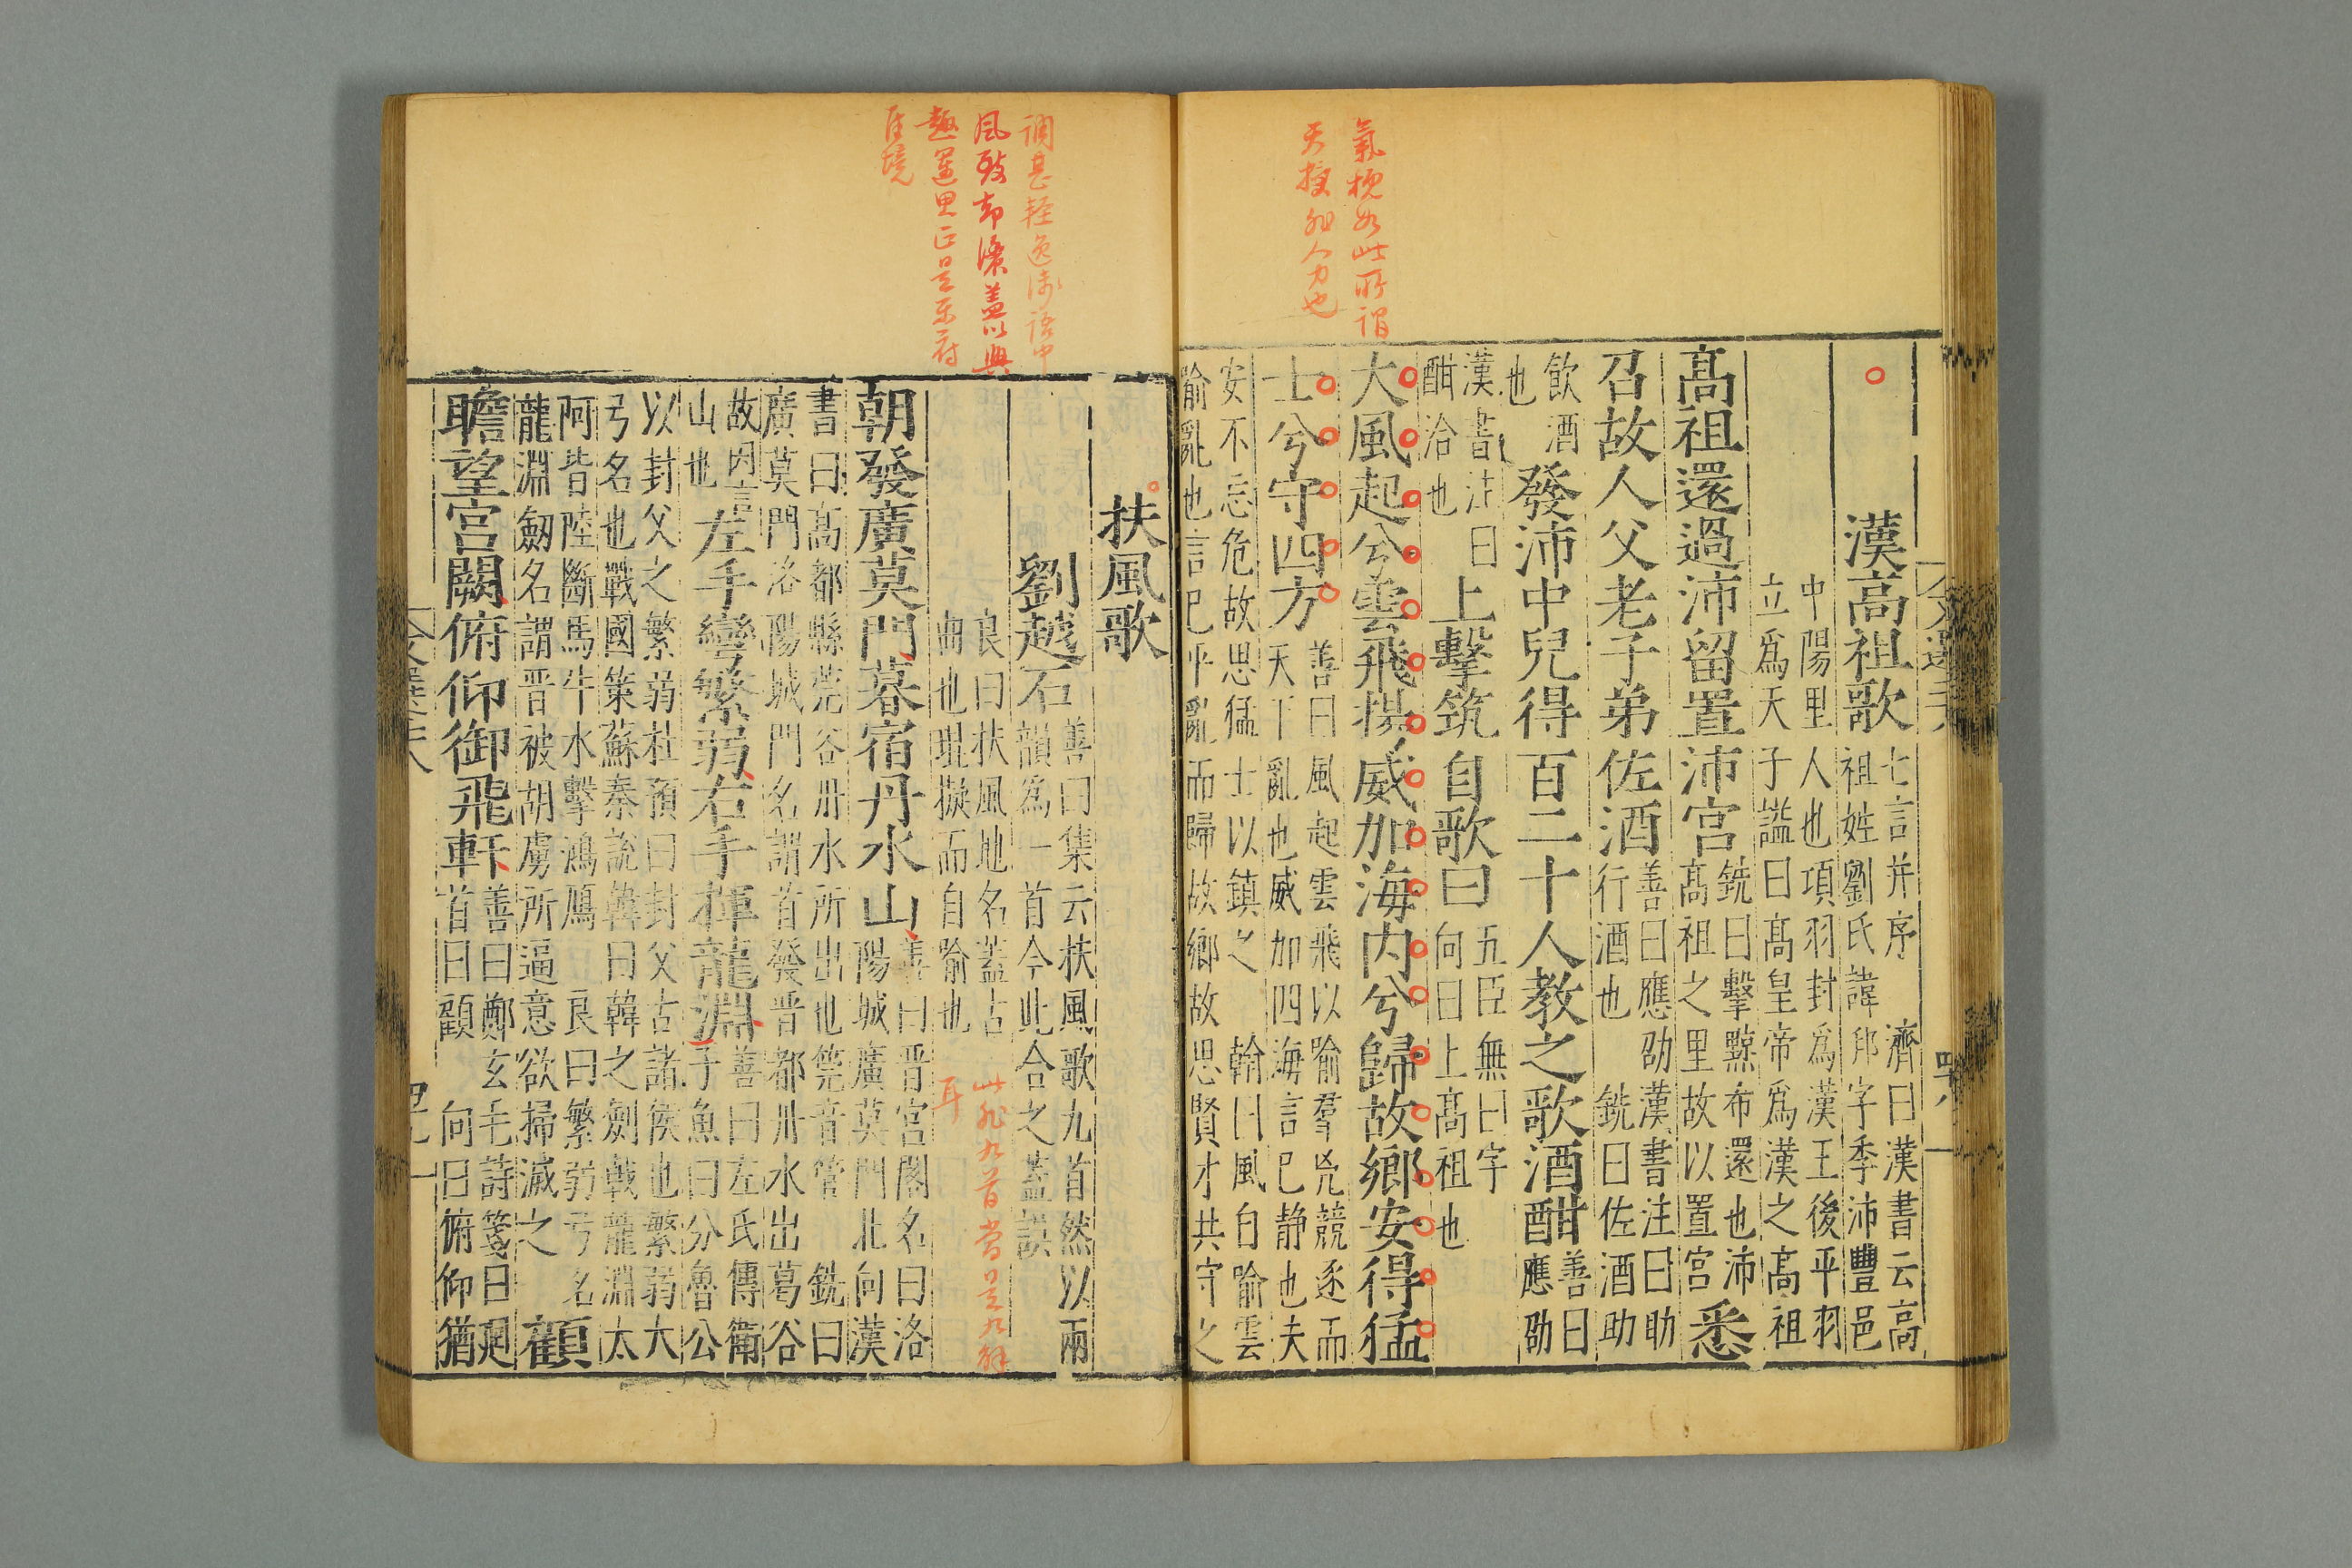 氣槩如此所謂
天授非人力也
漢高祖歌
七言并序 濟曰漢書云高
祖姓劉氏諱邦字季沛豐邑
中陽里人也項羽封爲漢王後平羽
立爲天子謚曰高皇帝爲漢之高祖
高祖還過沛留置沛宮
銑曰擊黥布還也沛
高祖之里故以置宮
悉
召故人父老子弟佐酒
善曰應劭漢書注曰助
行酒也 銑曰佐酒助
飲酒
也
發沛中兒得百二十人教之歌酒酣
善曰
應劭
漢書注曰
酣洽也
上擊筑自歌曰
五臣無曰字
向曰上高祖也
大風起兮雲飛揚威加海内兮歸故鄉安得猛
士兮守四方
善曰風起雲飛以喻羣兇競逐而
天下亂也威加四海言巳静也夫
安不忘危故思猛士以鎮之 翰曰風自喻雲
喻亂也言巳平亂而歸故鄉故思賢才共守之
調甚輕逸味語中
風致却濃蓋以興
趣運思正是樂府
佳境
扶風歌
劉越石
善曰集云扶風歌九首然以兩
韻爲一首今此合之蓋誤
良曰扶風地名蓋古
曲也琨擬而自喻也
此非九首當是九解
耳
朝發廣莫門暮宿丹水山
善曰晋宮閣名曰洛
陽城廣莫門北向漢
書曰高都縣莞谷丹水所出也莞音管 銑曰
廣莫門洛陽城門名謂首發晋都丹水出葛谷
故因言
山也
左手彎繁弱右手揮龍淵
善曰左氏傳衛
子魚曰分魯公
以封父之繁弱杜預曰封父古諸侯也繁弱大
弓名也戰國策蘇秦說韓曰韓之劍戟龍淵太
阿皆陸斷馬牛水擊鴻鴈 良曰繁弱弓名
龍淵劒名謂晋被胡虜所逼意欲掃滅之
顧
瞻望宮闕俯仰御飛軒
善曰鄭玄毛詩箋曰廻
首曰顧 向曰俯仰猶